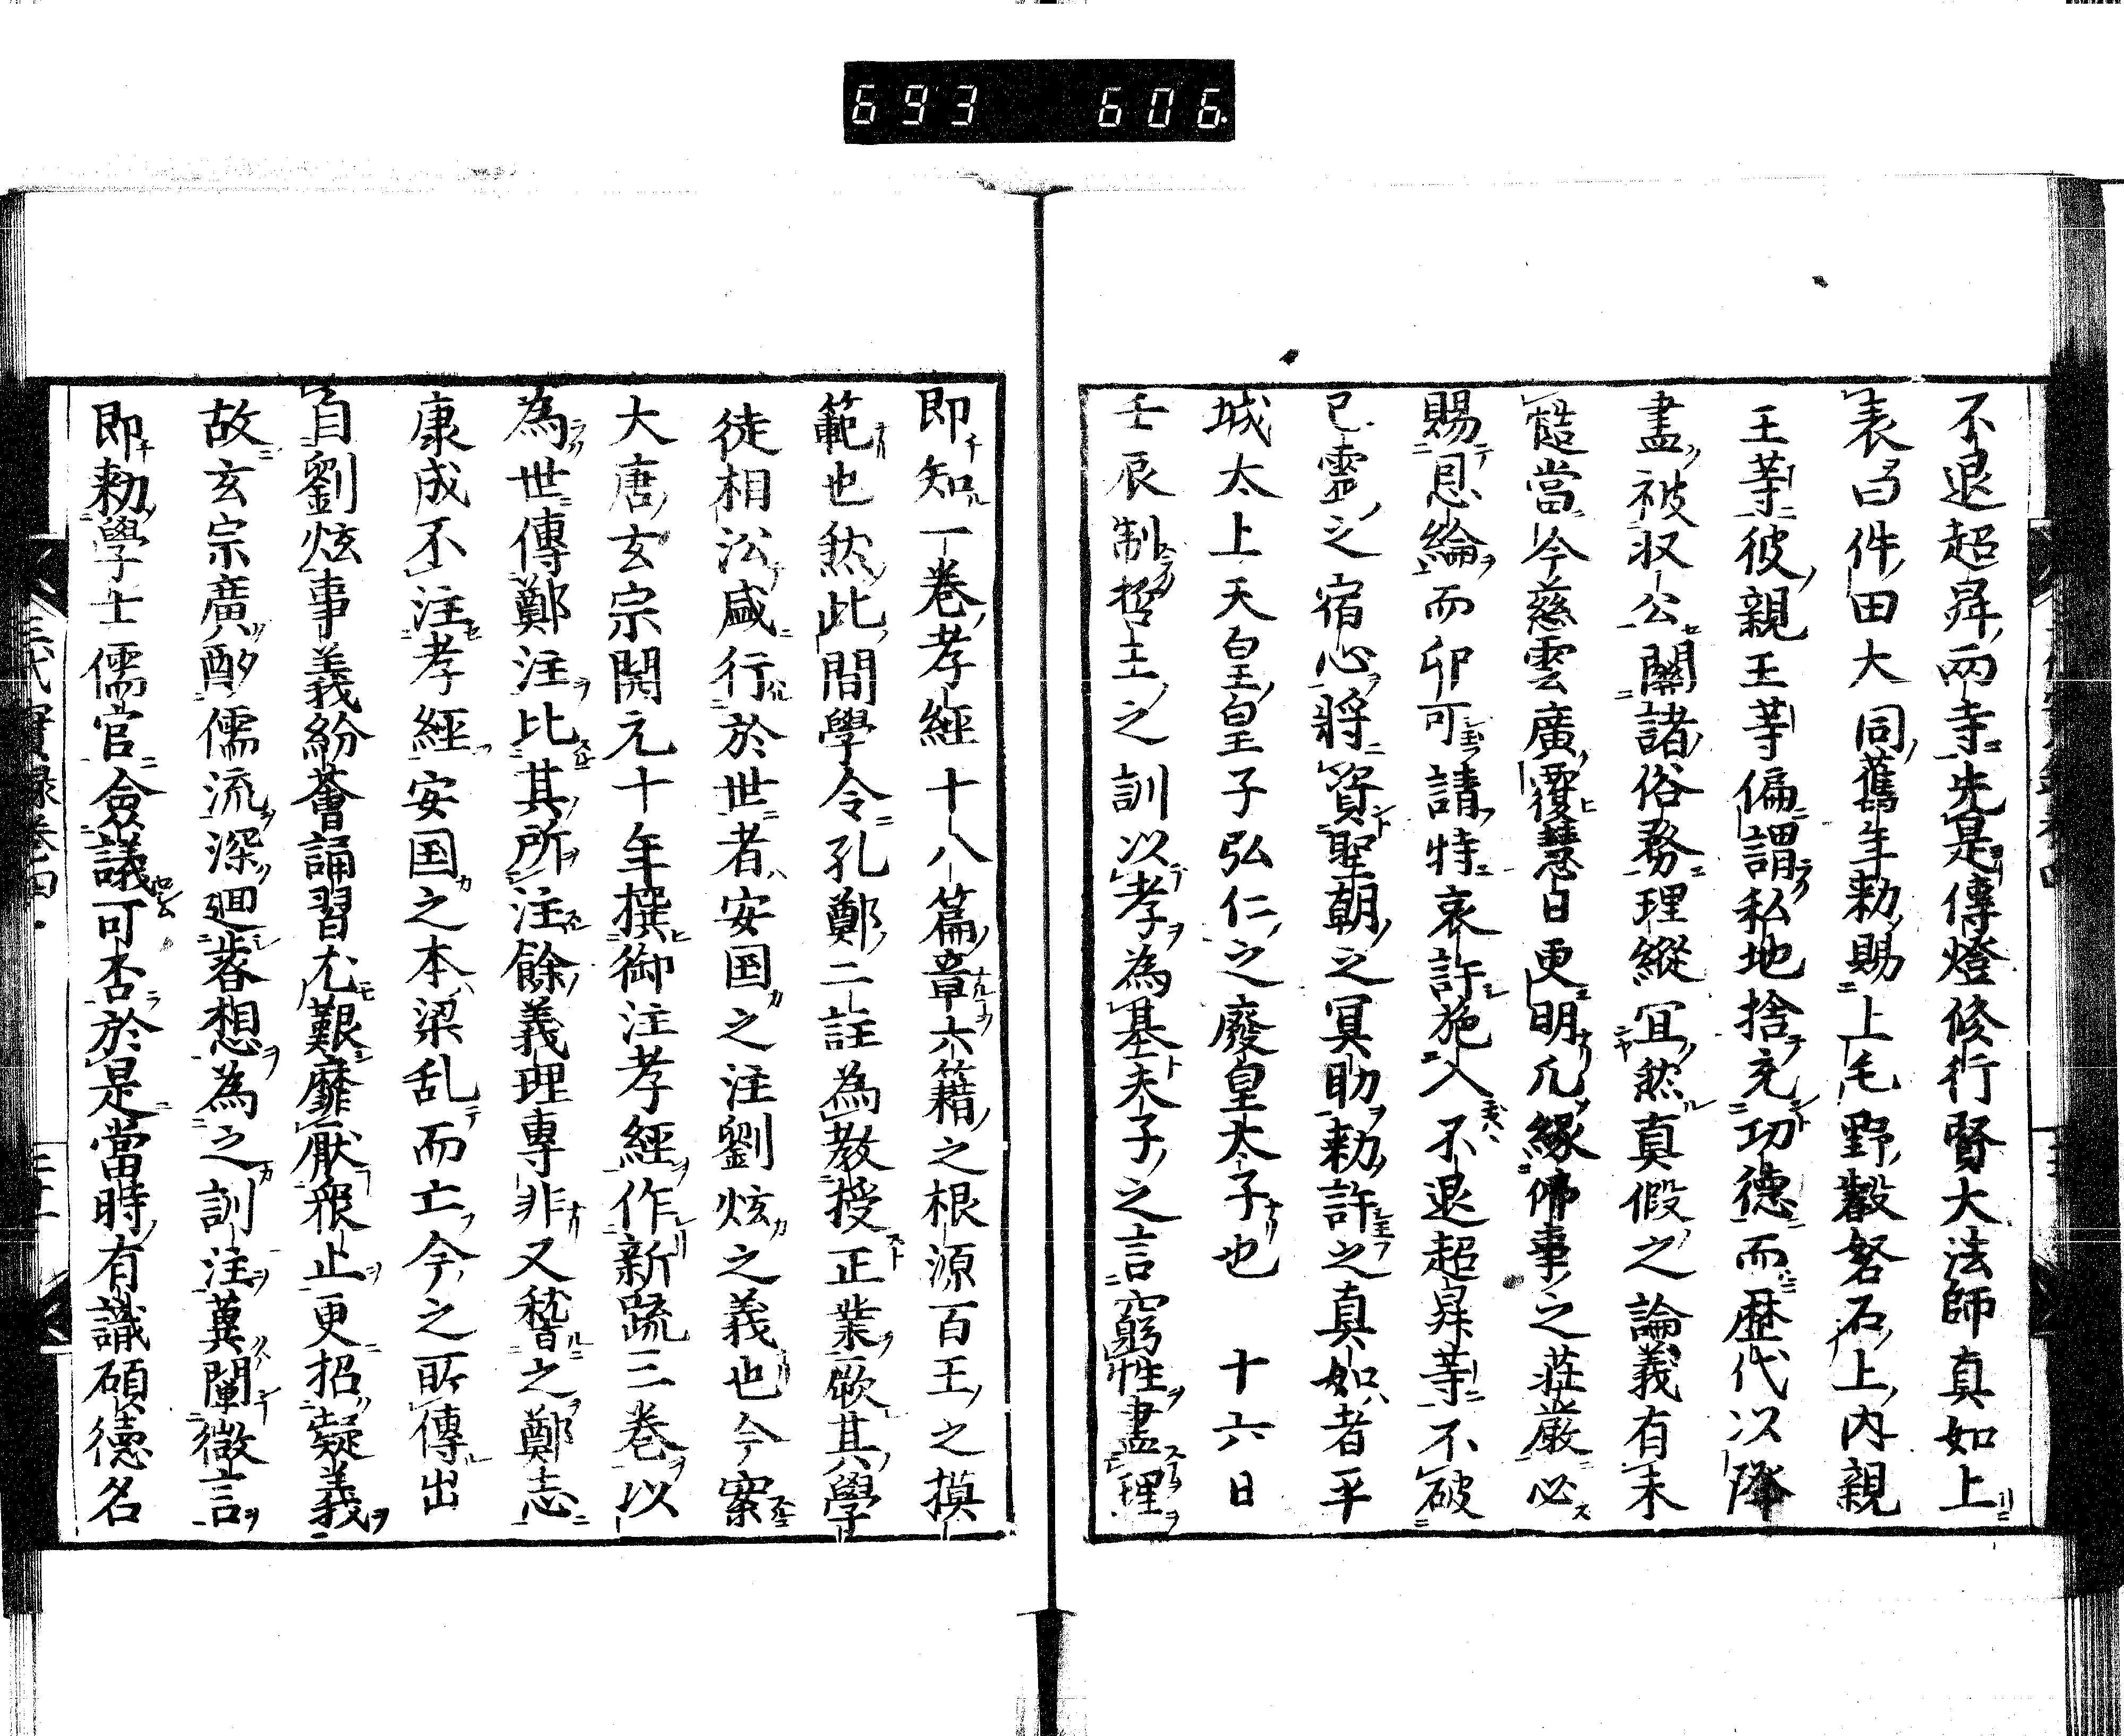 693 606
不退超昇両寺先是傳燈修行賢大法師真如上
表曰件田大同舊年勅賜上毛野穀努石上内親
王等彼親王等偏謂私地捨充功徳而歴代以降
盡被収公關諸俗務理縱冝然真假之論義有未
愜當今慈雲廣覆慧日更明凢縁佛事之莊嚴必
賜恩綸而卯可請特哀許施入不退超昇等不破
已靈之宿心將資聖朝之冥助勅許之真如者平
城太上天皇皇子弘仁之廢皇太子也 十六日
壬辰制哲王之訓以孝為基夫子之言窮性盡理
即知一卷孝經十八篇章六籍之根源百王之摸
範也然此間學令孔鄭二註為教授正業厥其學
徒相㳂盛行於世者安国之注劉炫之義也今案
大唐玄宗開元十年撰御注孝經作新䟽三卷以
為世傳鄭注比其所注餘義理專非又稽之鄭志
康成不注孝經安国之本梁乱而亡今之所傳出
自劉炫事義紛薈誦習尤艱靡厭衆止更招疑義
故玄宗廣酌儒流深廻睿想為之訓注冀闡微言
即勅學士儒官僉議可否於是當時有識碩德名
三代實録卷四